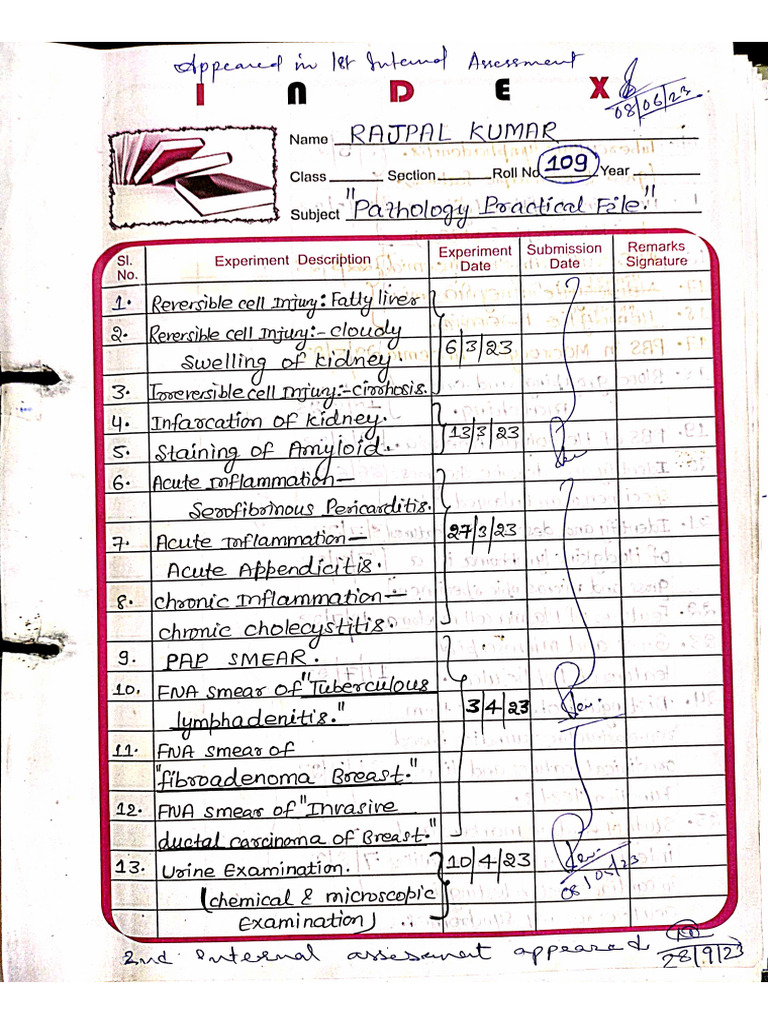 Appeared in 1st Internal Assessment
INDEX
08/06/23
Name RAJPAL KUMAR
Class Section Roll No 109 Year
Subject "Pathology Practical File."
Sl. No. Experiment Description Experiment Date Submission Date Remarks Signature
1. Reversible cell Injury: Fatty liver
2. Reversible cell Injury:- cloudy
Swelling of kidney. 6/3/23
3. Irreversible cell Injury:- cirrhosis.
4. Infarcation of kidney.
13/3/23
5. Staining of Amyloid.
6. Acute Inflammation—
Serofibrinous Pericarditis.
7. Acute Inflammation— 27/3/23
Acute Appendicitis.
8. chronic Inflammation—
chronic cholecystitis.
9. PAP SMEAR.
10. FNA smear of "Tuberculous
lymphadenitis." 3/4/23
11. FNA smear of
"fibroadenoma Breast."
12. FNA smear of "Invasive
ductal carcinoma of Breast."
13. Urine Examination. 10/4/23
(chemical & microscopic
Examination) ..
2nd Internal assessment appeared
28/9/23